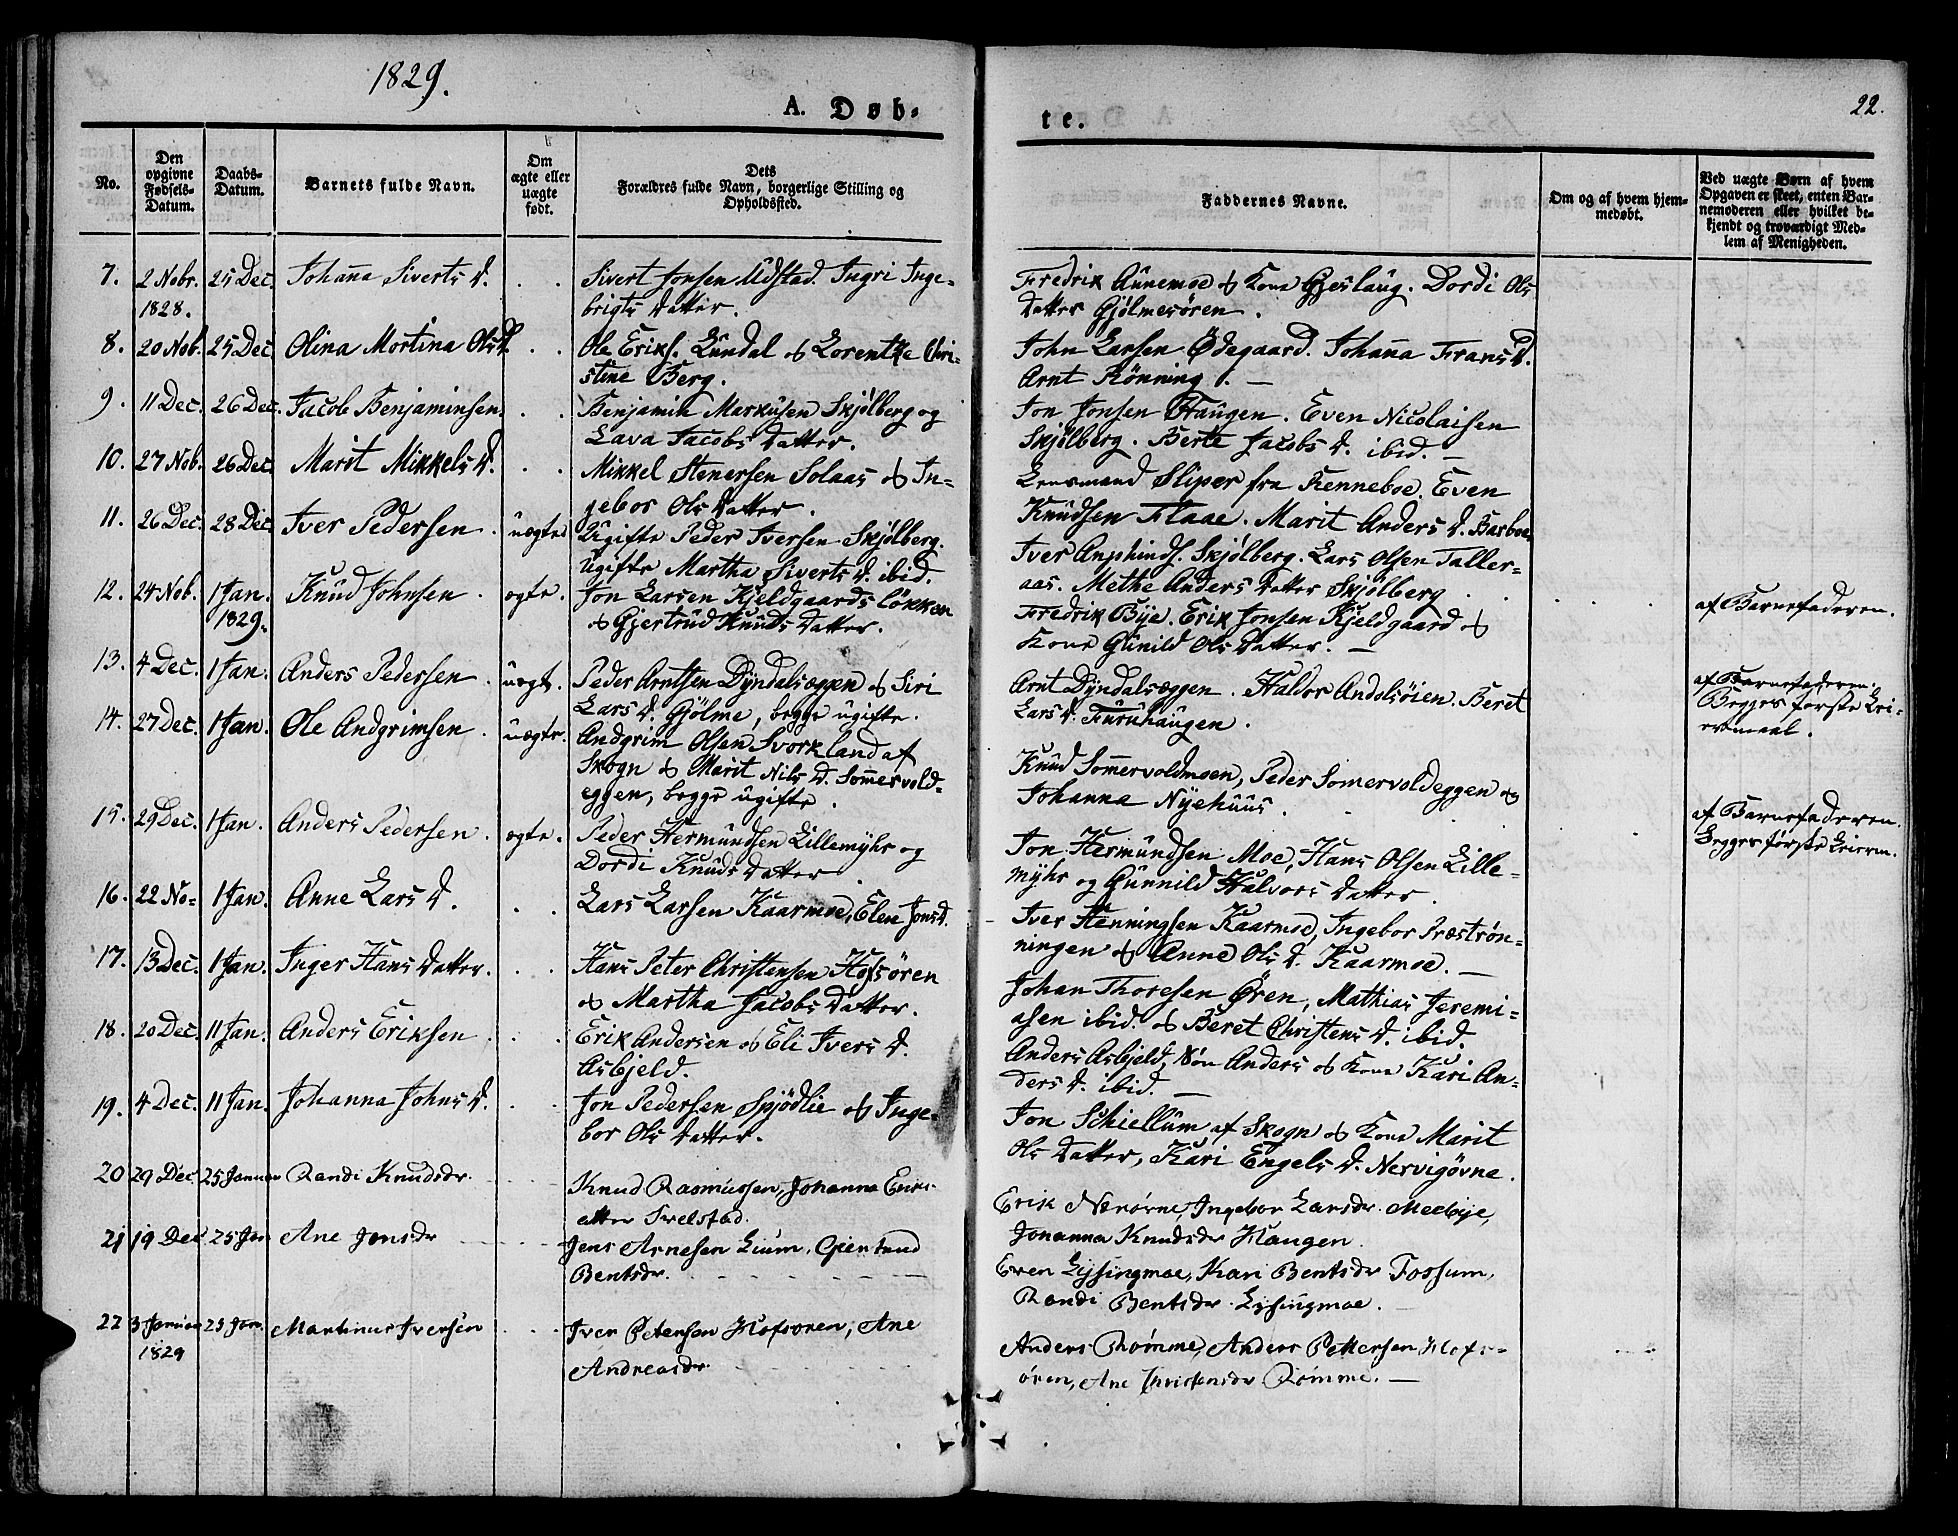 1829.
A. Døb-
te.
22.
No.
Den opgivne Fødsels-Datum.
Daabs-Datum.
Barnets fulde Navn.
Om ægte eller uægte født.
Dets Forældres fulde Navn, borgerlige Stilling og Opholdsted.
Faddernes Navne.
Om og af hvem hjem-medøbt.
Ved uægte Børn af hvem Opgaven er skeet, enten Bar-nemoderen eller hvilket be-kjendt og troværdigt Med-lem af Menigheden.
7. 2 Nobr. 25 Dec. Johanna Siverts D. . . Sivert Jonsen Udstad. Ingri Inge-
1828. brigts Datter.
Fredrik Aunemoe & Kone Gjeslaug. Dordi Ols
Datter Gjølmesören.
8. 20 Nob. 25 Dec. Olina Mortina Ols D. . . Ole Eriks. Lundal & Lorentze Chri-
stine Berg.
John Larsen Ødegaard. Johanna Frans D.
Arnt Rönning. —
9. 11 Dec. 26 Dec. Jacob Benjaminsen . . Benjamin Markusen Skjølberg og
Lava Jacobs Datter.
Jon Jonsen Haugen. Even Nicolaisen
Skjølberg. Berte Jacobs D. ibid. —
10. 27 Nob. 26 Dec. Marit Mikkels D. . . Mikkel Stenersen Solaas & In-
gebor Ols Datter.
Lensmand Sliper fra Renneboe. Even
Knudsen Flaae. Marit Anders D. Barboe.
11. 26 Dec. 28 Dec. Iver Pedersen . uægte Ugifte Peder Iversen Skjølberg.
ugifte Martha Siverts D. ibid.
Iver Amphinds. Skjølberg. Lars Olsen Taller-
aas. Methe Anders Datter Skjølberg
af Barnefaderen.
12. 24 Nob. 1 Jan. Knud Johnsen . ægte. Jon Larsen Kjeldgaardsløkken
1829. & Gjertrud Knuds Datter.
Fredrik Bye. Erik Jonsen Kjeldgaard &
Kone Gunild Ols Datter. —
13. 4 Dec. 1 Jan. Anders Pedersen . uægt. Peder Arntsen Dyndalsæggen & Siri
Lars D. Gjölme, begge ugifte.
Arnt Dyndalsæggen. Haldor Andolsöien. Beret
Lars D. Furuhaugen.
af Barnefaderen.
Begges første Lei-
ermaal.
14. 27 Dec. 1 Jan. Ole Andgrimsen . uægte. Andgrim Olsen Svorkland af
Skogn & Marit Nils D. Sommervold-
eggen, begge ugifte.
Knud Sommervoldmoen, Peder Somervoldeggen &
Johanna Nyehuus.
af Barnefaderen.
Begges første Leierm.
15. 29 Dec. 1 Jan. Anders Pedersen . ægte. Peder Hermundsen Lillemyhr og
Dordi Knuds Datter
Jon Hermundsen Moe, Hans Olsen Lille-
myhr og Gunnild Halvors Datter.
16. 22 No- 1 Jan. Anne Lars D. . . Lars Larsen Kaarmoe, Elen Jons D.
Iver Henningsen Kaarmoe, Ingebor Præstrøn-
ningen & Anne Ols D. Kaarmoe. —
17. 13 Dec. 1 Jan. Inger Hans Datter. . . Hans Peter Christensen Hofsören
& Martha Jacobs Datter.
Johan Thoresen Øren, Mathias Jeremi-
asen ibid. & Beret Christens D. ibid.
18. 20 Dec. 11 Jan. Anders Eriksen . . Erik Andersen & Eli Ivers D.
Asbjeld.
Anders Asbjeld, Søn Anders & Kone Kari An-
ders D. ibid. —
19. 4 Dec. 11 Jan. Johanna Johns D. . . Jon Pedersen Spjødlie & Inge-
bor Ols Datter.
Jon Schiellum af Skogn & Kone Marit
Ols Datter, Kari Engels D. Nervigövne.
20 29 Dec. 25 Januar Randi Knudsdr. Knud Rasmussen, Johanna Eriks-
atter Svelstad.
Erik Nærörne, Ingebor Larsdr. Meebye,
Johanna Knudsdr Haugen.
21 19 Dec 25 Jan Ane Jensdr Jens Arnesen Lium, Giertrud
Bentsdr.
Even Lysingmoe, Kari Bentsdr Fossum,
Randi Bentsdr Lysingmoe. —
22 3 Januar 25 Jan. Martinus Iversen Iver Petersen Hofsoren, Ane
1829 Andreasdr
Anders Rømme, Anders Pettersen Hofs-
ören, Ane Christensdr Rømme. —